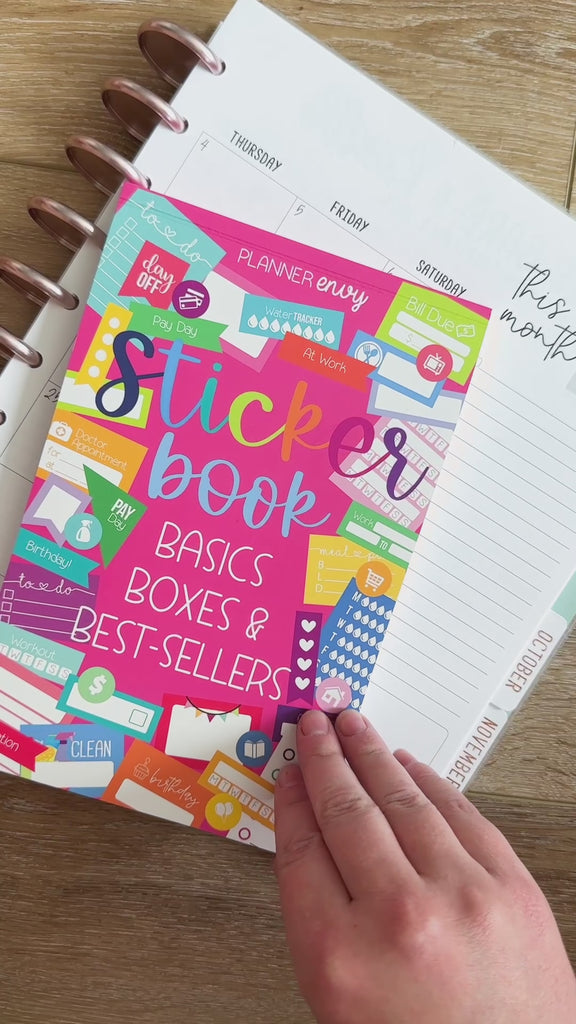 4
THURSDAY
5
FRIDAY
SATURDAY
this
month
to do
day
OFF
PLANNER envy
Pay Day
Water TRACKER
Bill Due
At Work
sticker
book
BASICS
BOXES &
BEST-SELLERS
Doctor
Appointment
for
at
PAY
Day
Work
TO
Birthday!
B
L
D
M
T
W
T
F
to do
Workout
M T W T F S S
CLEAN
birthday
OCTOBER
NOVEMBER